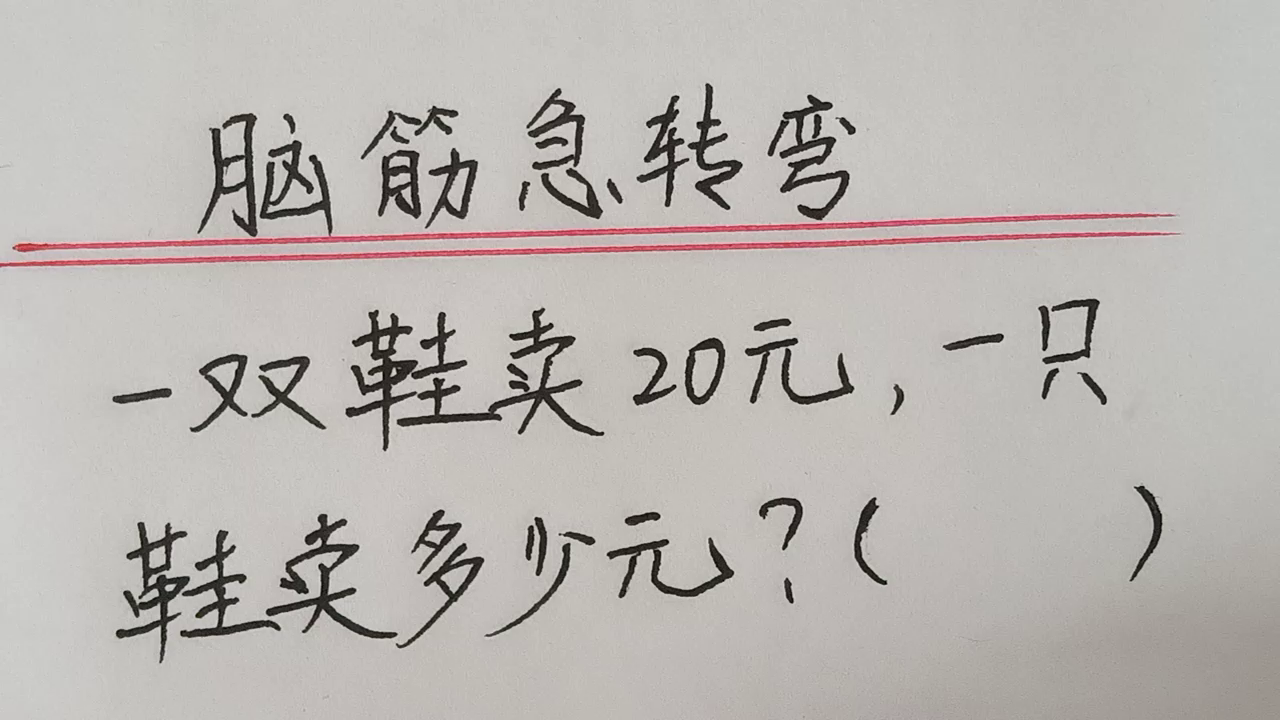 脑筋急转弯
一双鞋卖20元,一只
鞋卖多少元?(   )